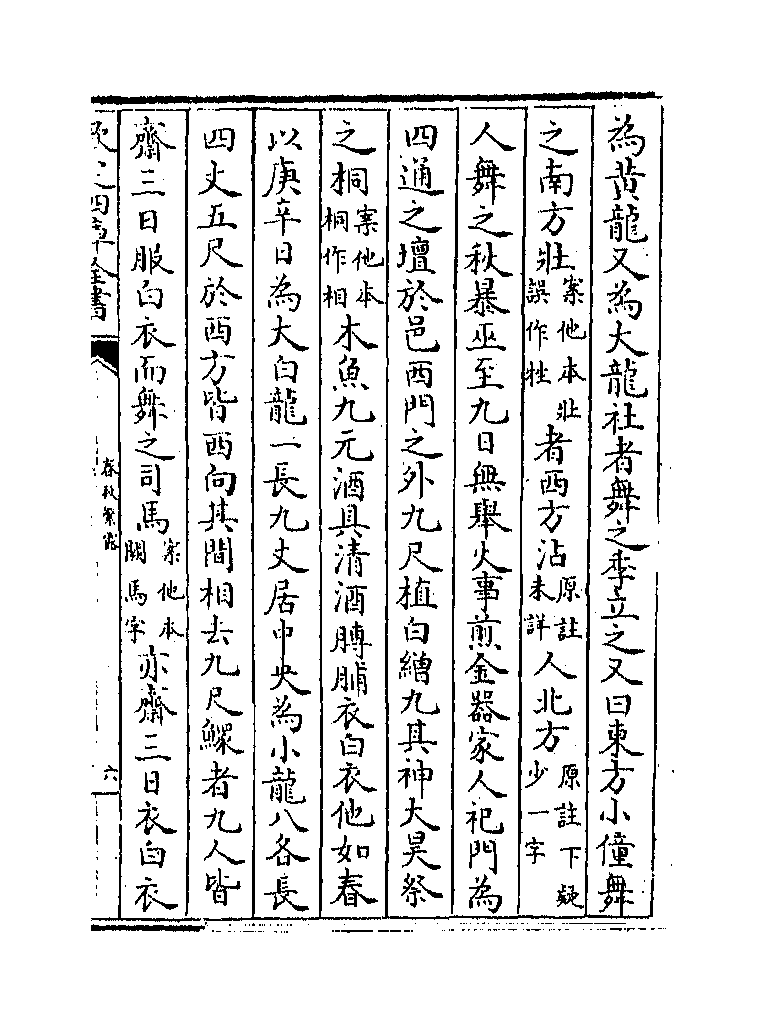 為黄龍又為大龍社者舞之季立之又曰東方小僮舞
之南方壯案他本壯誤作牲者西方沾原註未詳人北方原註下疑少一字
人舞之秋暴巫至九日無舉火事煎金器家人祀門為
四通之壇於邑西門之外九尺植白繒九其神大昊祭
之桐案他本桐作相木魚九元酒具清酒膊脯衣白衣他如春
以庚辛日為大白龍一長九丈居中央為小龍八各長
四丈五尺於西方皆西向其間相去九尺鰥者九人皆
齋三日服白衣而舞之司馬案他本闕馬字亦齋三日衣白衣
欽定四庫全書
春秋繁露
六